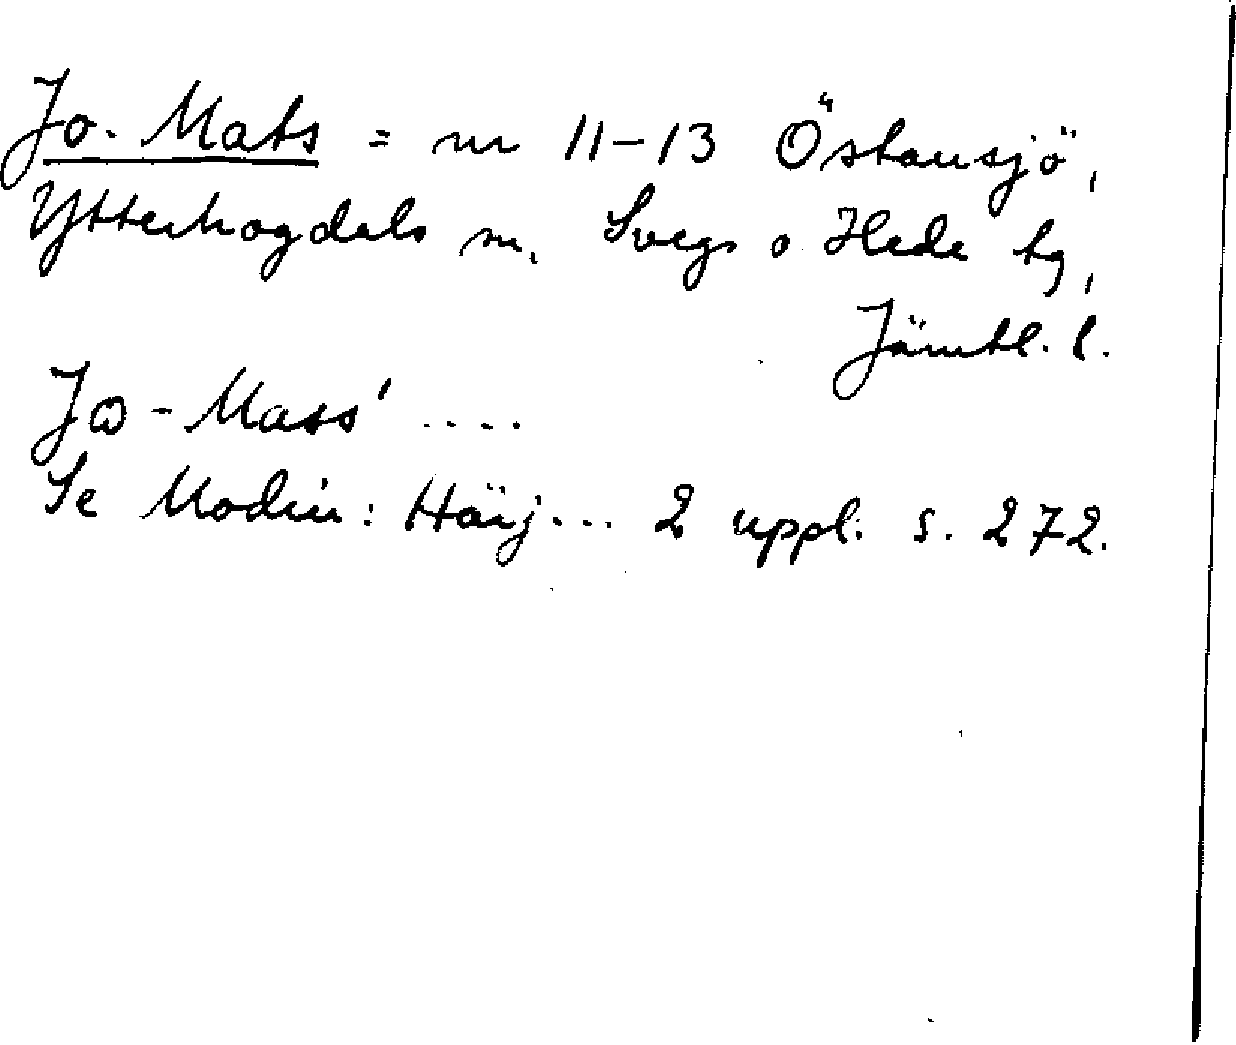 Jo-Mats = nr 11-13 Östansjö,
Ytterhogdals sn. Svegs o Hede tg,
Jämtl. l.
Jɷ-Mass' ....
Se Modin: Härj... 2 uppl. s. 272.